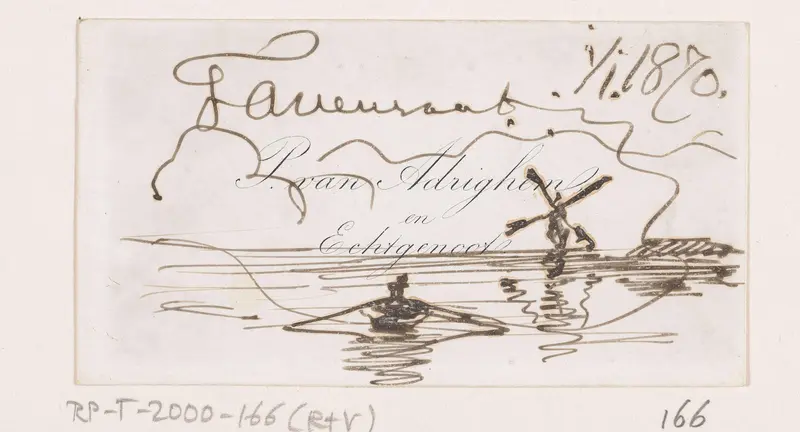 Tavenraat. 1/1. 1870.
P. van Adrighem
en
Echtgenoot
RP-T-2000-166 (R+V)
166